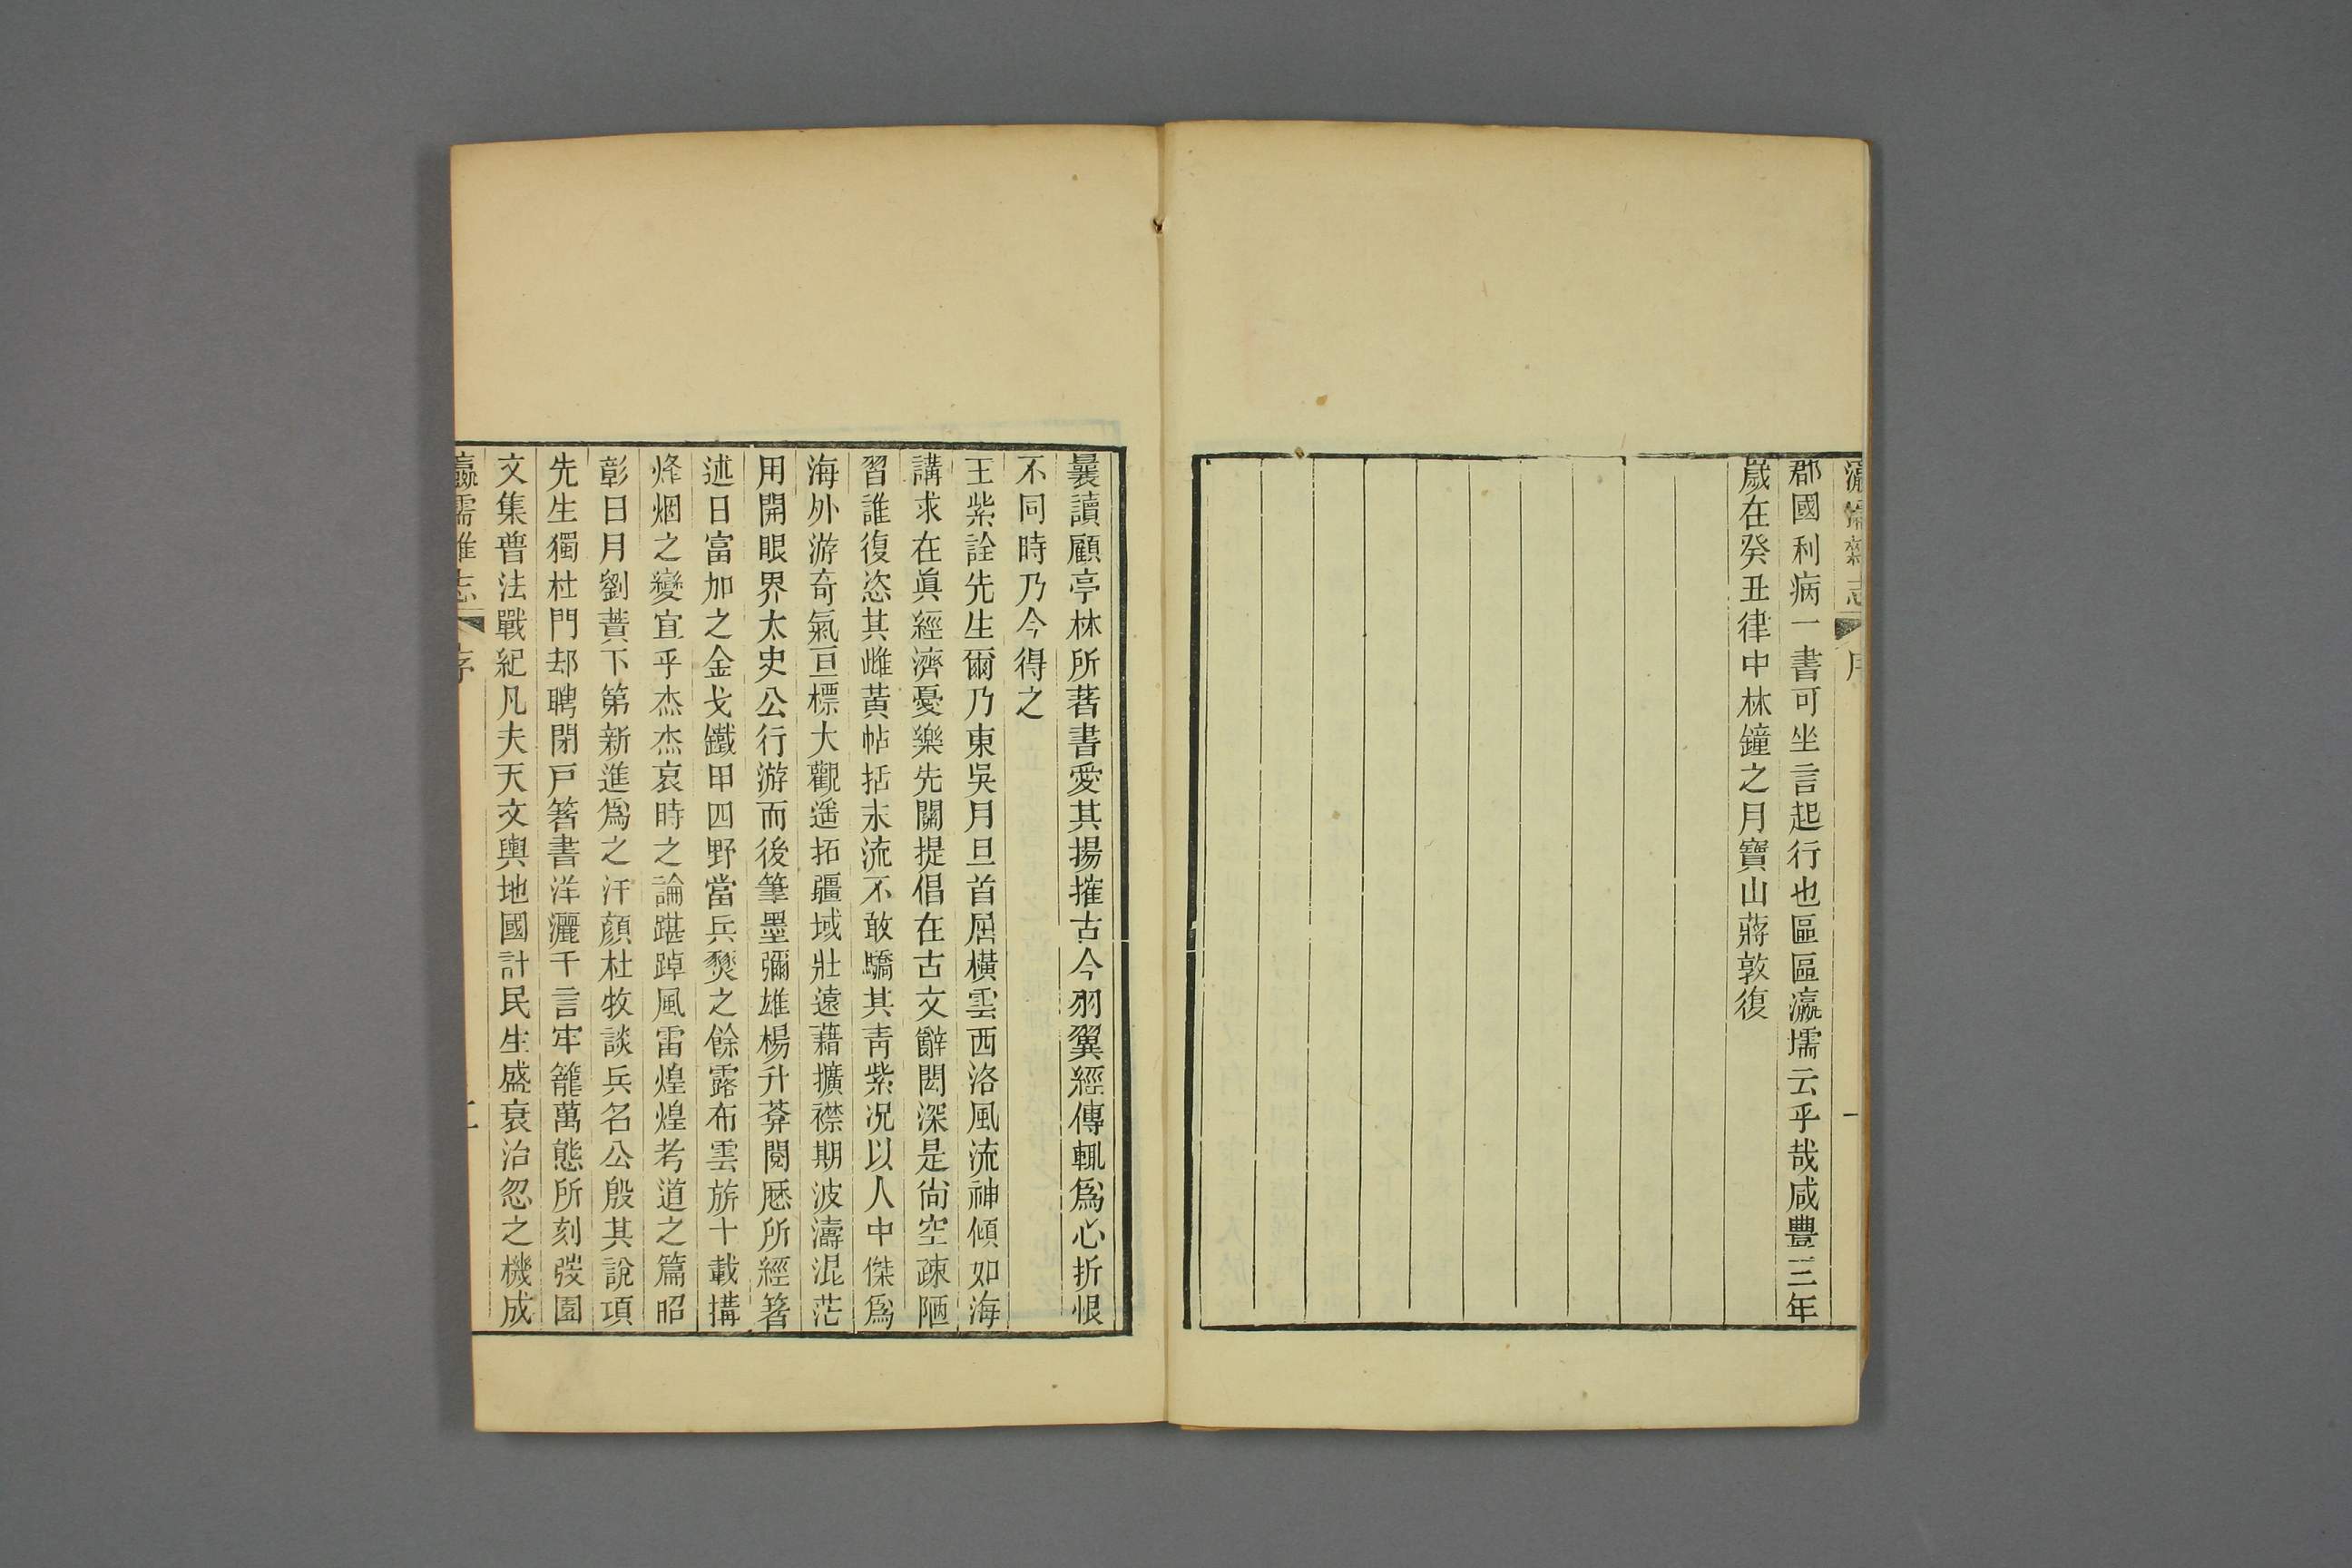 瀛壖雜志
序
一
郡國利病一書可坐言起行也區區瀛壖云乎哉咸豐三年
歲在癸丑律中林鐘之月寶山蔣敦復
曩讀顧亭林所著書愛其揚摧古今羽翼經傳輒爲心折恨
不同時乃今得之
王紫詮先生爾乃東吳月旦首屈橫雲西洛風流神傾如海
講求在眞經濟憂樂先關提倡在古文辭閎深是尙空疎陋
習誰復恣其雌黃帖括末流不敢驕其靑紫况以人中傑爲
海外游奇氣亘標大觀遥拓疆域壯遠藉擴襟期波濤混茫
用開眼界太史公行游而後筆墨彌雄楊升菴閱歷所經箸
述日富加之金戈鐵甲四野當兵燹之餘露布雲旂十載搆
烽烟之變宜乎杰杰哀時之論踸踔風雷煌煌考道之篇昭
彰日月劉蕡下第新進爲之汗顏杜牧談兵名公殷其說項
先生獨杜門却聘閉戸箸書洋灑千言牢籠萬態所刻弢園
文集普法戰紀凡夫天文輿地國計民生盛衰治忽之機成
瀛壖雜志
序
二